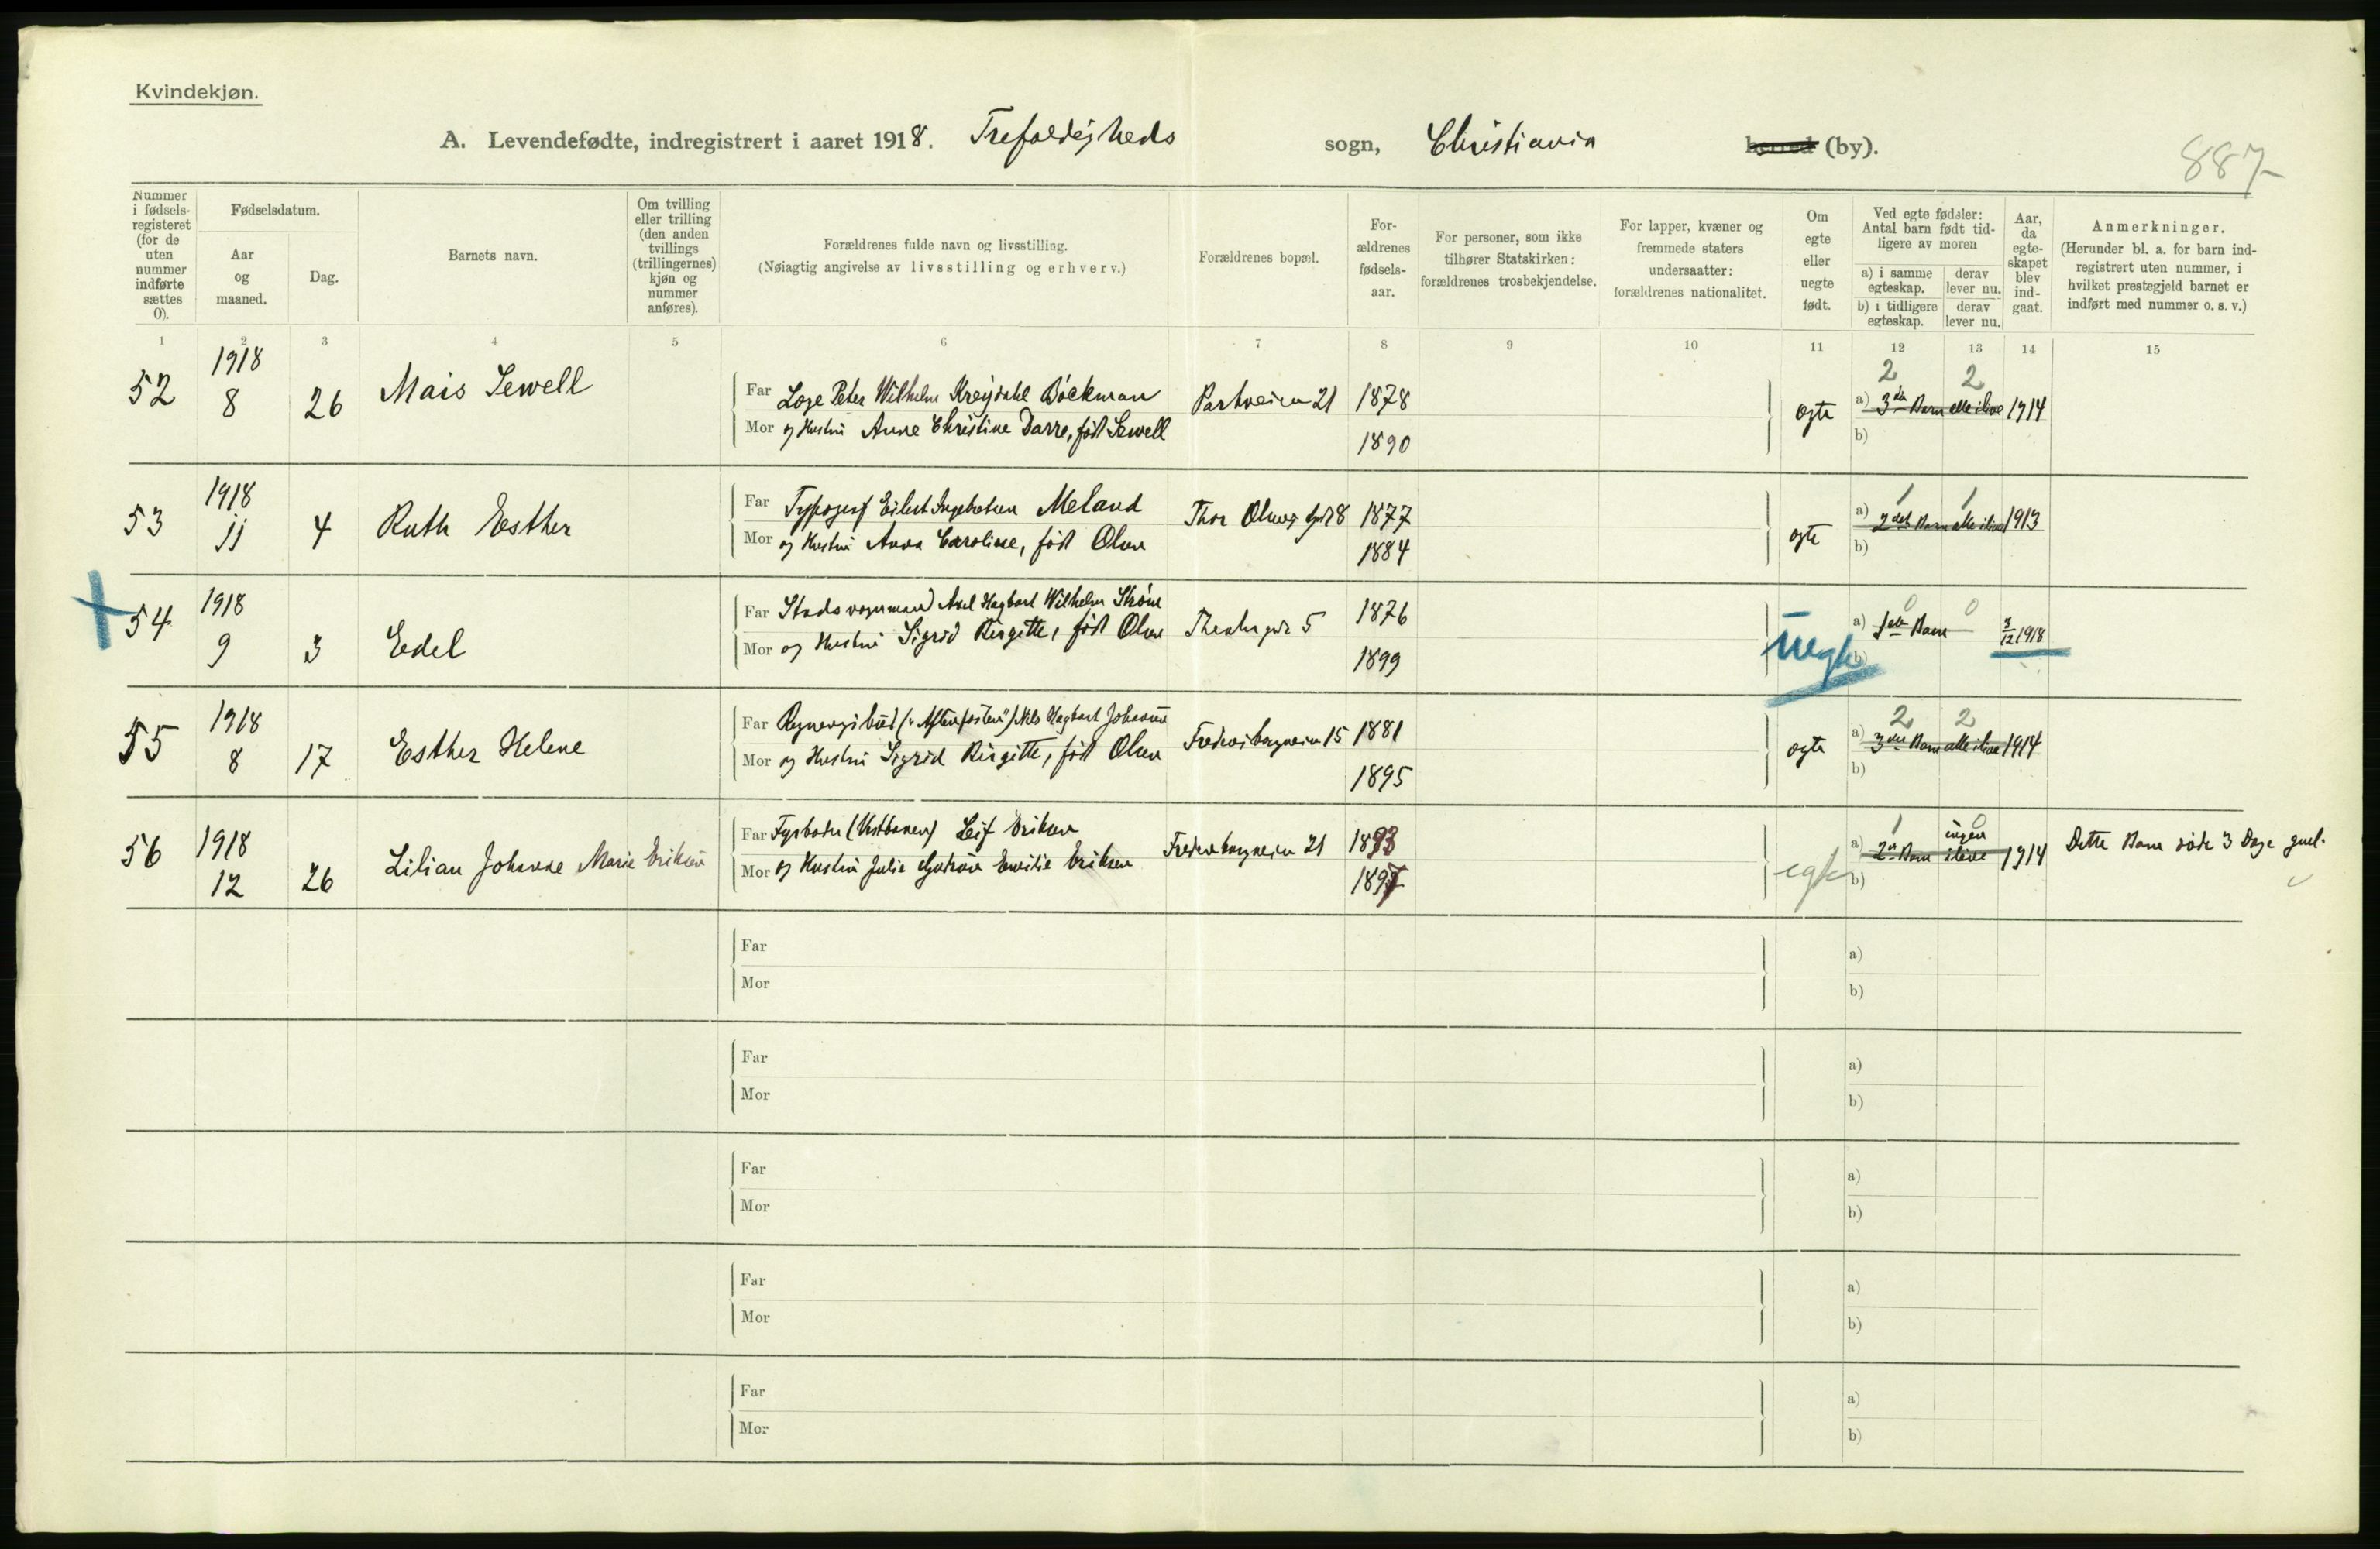 Kvindekjøn.
A. Levendefødte, indregistrert i aaret 1918. Trefoldigheds sogn, Christiania herred (by).
887
Nummer i fødselsregisteret (for de uten nummer indførte sættes 0).
Fødselsdatum.
Aar og maaned.
Dag.
Barnets navn.
Om tvilling eller trilling (den anden tvillings (trillingernes) kjøn og nummer anføres).
Forældrenes fulde navn og livsstilling.
(Nøiagtig angivelse av livsstilling og erhverv.)
Forældrenes bopæl.
Forældrenes fødselsaar.
For personer, som ikke tilhører Statskirken: forældrenes trosbekjendelse.
For lapper, kvæner og fremmede staters undersaatter: forældrenes nationalitet.
Om egte eller uegte født.
Ved egte fødsler: Antal barn født tidligere av moren
a) i samme egteskap.
derav lever nu.
b) i tidligere egteskap.
derav lever nu.
Aar, da egteskapet blev indgaat.
Anmerkninger.
(Herunder bl. a. for barn indregistrert uten nummer, i hvilket prestegjeld barnet er indført med nummer o. s. v.)
1 2 3 4 5 6 7 8 9 10 11 12 13 14 15
52 1918 8 26 Mais Sewell
Far Loge Peter Wilhelm Böckman 21 1878
Mor og Hustru Anne Christine Darre, født Sewell 1890
egte 2 2
a) 3die Barn alle ilive 1914
b)
53 1918 11 4 Ruth Esther
Far Typograf Eilert Ingebretsen Meland Thor Olsens gd 8 1877
Mor og Hustru Anna Caroline, født Olsen 1884
egte 1 1
a) 2det Barn alle ilive 1913
b)
54 1918 9 3 Edel
Far Axel Hagbart Wilhelm Strøm Theatergd 5 1876
Mor og Hustru Sigrid Birgitte, født Olsen 1899
uegte 0 0
a) 1ste Barn 3/12 1918
b)
55 1918 8 17 Esther Helene
Far ("Aftenposten") Nils Hagbart Johansen 15 1881
Mor og Hustru Sigrid Birgitte, født Olsen 1895
egte 2 2
a) 3die Barn alle ilive 1914
b)
56 1918 12 26 Lilian Johanne Marie Eriksen
Far Fyrbøder (Vestbanen) Leif Eriksen 21 1893
Mor og Hustru Julie Emilie Eriksen 1897
egte 1 0
a) 2det Barn ingen ilive 1914 Dette Barn døde 3 Dage gml.
b)
Far a)
Mor b)
Far a)
Mor b)
Far a)
Mor b)
Far a)
Mor b)
Far a)
Mor b)